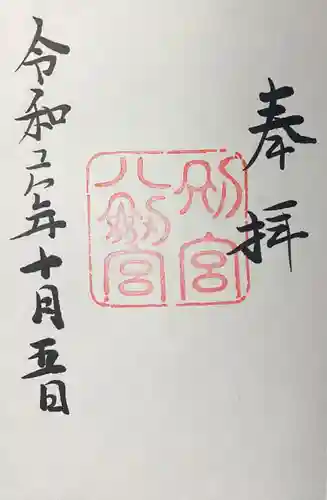 奉拝
別宮
八剱宮
令和元年十月五日